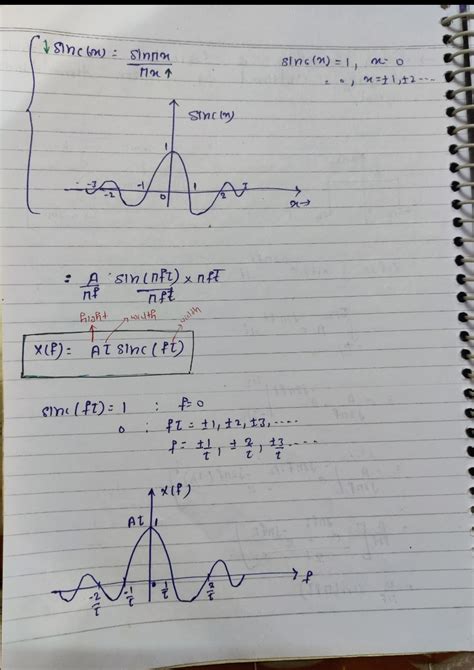 ↓ sinc(x) = sinπx / πx ↑
sinc(x) = 1, x = 0
= 0, x = ±1, ±2 ----
sinc(x)
1
-3 -2 -1 0 1 2 3
x→
= A/πf · sin(πfτ)/πfτ × πfτ
height → width → width
X(f) = Aτ sinc(fτ)
sinc(fτ) = 1 : f=0
0 : fτ = ±1, ±2, ±3, ----
f = ±1/τ, ±2/τ, ±3/τ ----
X(f)
Aτ 1
-2/τ -1/τ 0 1/τ 2/τ f